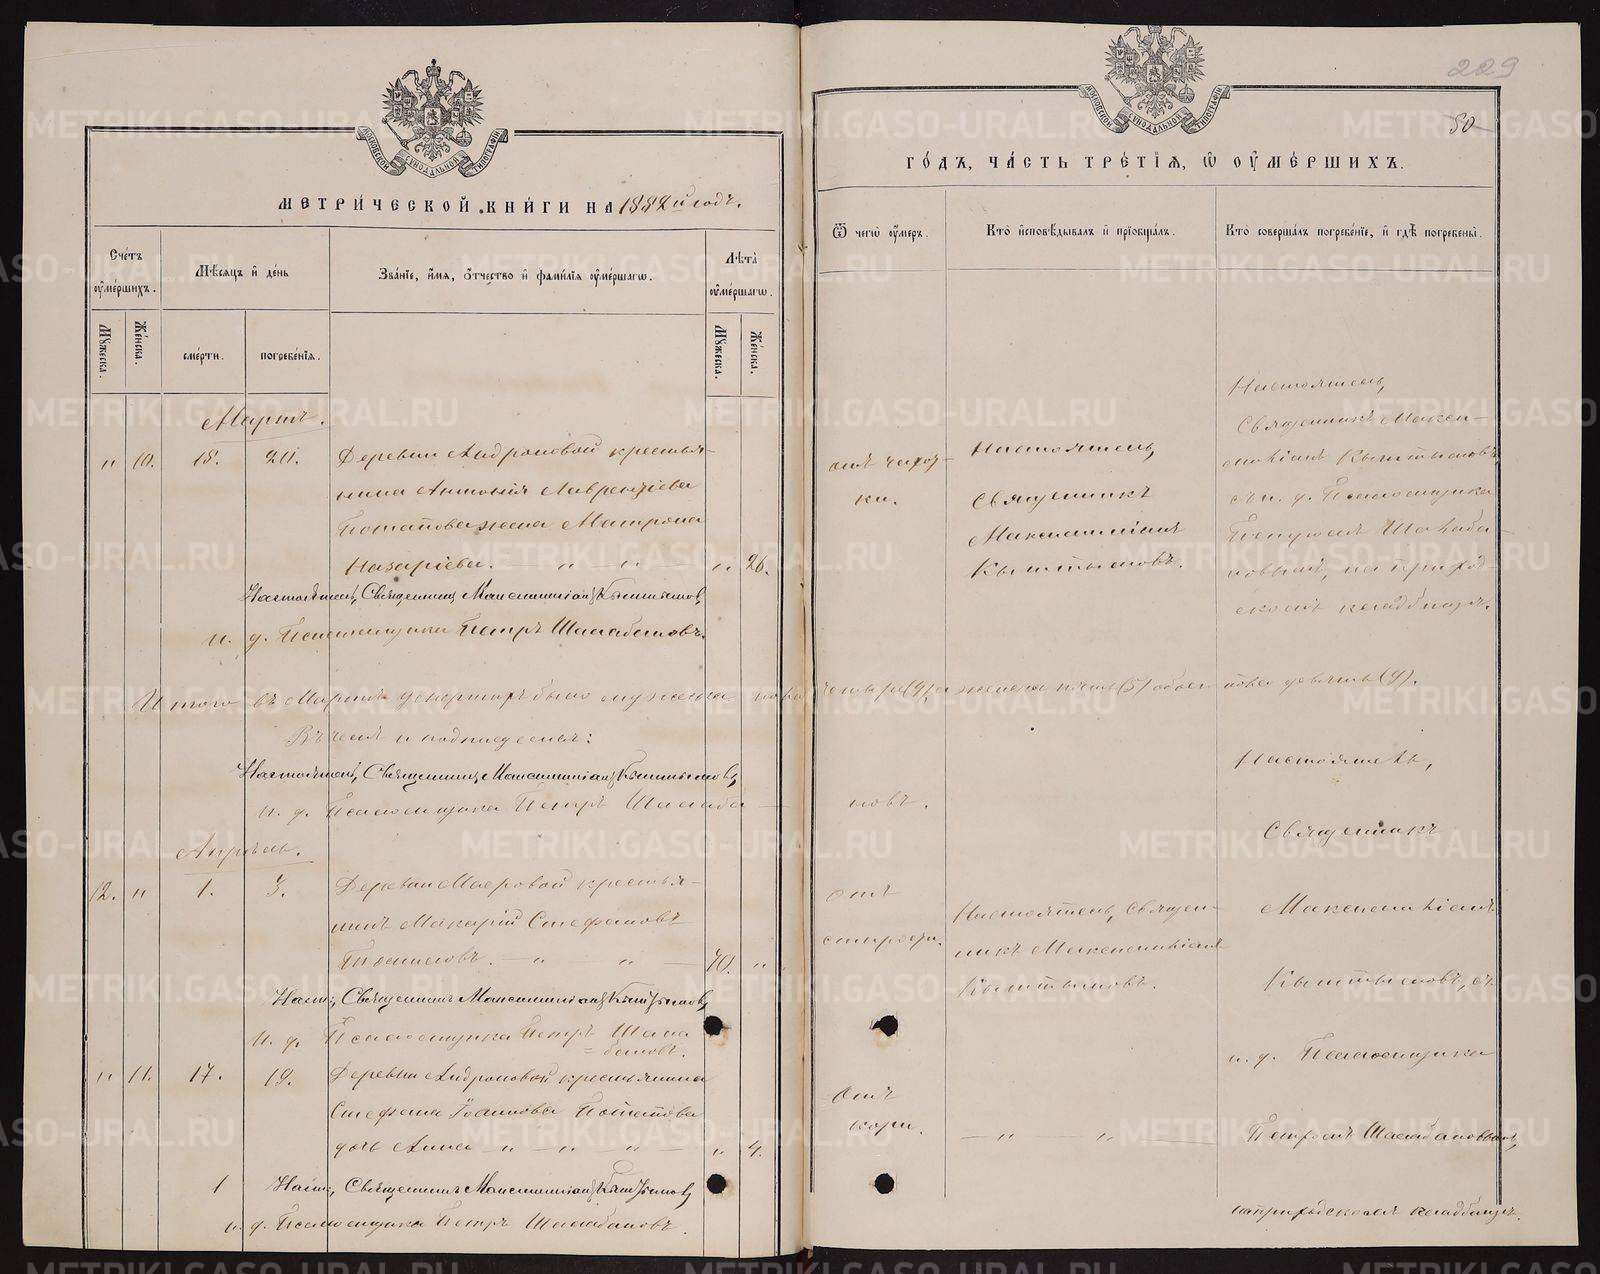 МОСКОВСКОЙ СѴНОДАЛЬНОЙ ТИПОГРАФІИ
МЕТРИ́ЧЕСКОЙ КНИ́ГИ НА 1882й годъ.
Сче́тъ ᲂу҆ме́ршихъ.
Мѣ́сяцъ и҆ де́нь
Зва́нїе, и҆́мя, ѻ҆́тчество и҆ фами́лїя ᲂу҆ме́ршагѡ.
Лѣ́та ᲂу҆ме́ршагѡ.
Мꙋ́жеска.
Же́нска.
сме́рти.
погребе́нїя.
Мꙋ́жеска.
Же́нска.
Мартъ.
" 10. 18. 20. Деревни Андроновой крестья-
нина Антонія Лаврентіева
Потапова жена Матрона
Назаріева. — " — " — " 26.
Настоятель, Священникъ Максимиліанъ Кыштымовъ,
и. д. Псаломщика Петръ Шалабановъ.
Итого въ Мартѣ умершихъ было мужеска пола четыре (4), а женска пять (5) обоего пола девять (9).
Въ чемъ и подписуемся:
Настоятель, Священникъ Максимиліанъ Кыштымовъ,
и. д. Псаломщика Петръ Шалаба-
новъ.
Апрѣль.
12. " 1. 3. Деревни крестья-
нинъ Макарій Стефановъ
— " — " — 70. "
Наст:, Священникъ Максимиліанъ Кыштымовъ,
и. д. Псаломщика Петръ Шала
=бановъ.
" 11. 17. 19. Деревни Андроновой крестьянина
Стефана Іоаннова Потапова
дочь Анна — " — " — " — " 4.
Наст:, Священникъ Максимиліанъ Кыштымовъ,
и. д. Псаломщика Петръ Шалабановъ.
229
50
МОСКОВСКОЙ СѴНОДАЛЬНОЙ ТИПОГРАФІИ
ГО́ДЪ, ЧА́СТЬ ТРЕ́ТЇЯ, Ѽ ОУ҆МЕ́РШИХЪ.
Ѿ чегѡ̀ ᲂу҆́меръ.
Кто̀ и҆сповѣ́дывалъ и҆ прїѡбща́лъ.
Кто̀ соверша́лъ погребе́нїе, и҆ гдѣ̀ погребены̀.
отъ чахот-
ки.
Настоятель,
Священникъ
Максимиліанъ
Кыштымовъ.
Настоятель,
Священникъ Макси-
миліанъ Кыштымовъ,
съ и. д. Псаломщика
Петромъ Шалаба-
новымъ, на приход-
скомъ кладбищѣ.
отъ
старости.
Настоятель, Священ-
никъ Максимиліанъ
Кыштымовъ.
Настоятель,
Священникъ
Максимиліанъ
Кыштымовъ, съ
и. д. Псаломщика
Отъ
кори.
— " — " —
Петромъ Шалабановымъ,
на приходскомъ кладбищѣ.
METRIKI.GASO-URAL.RU